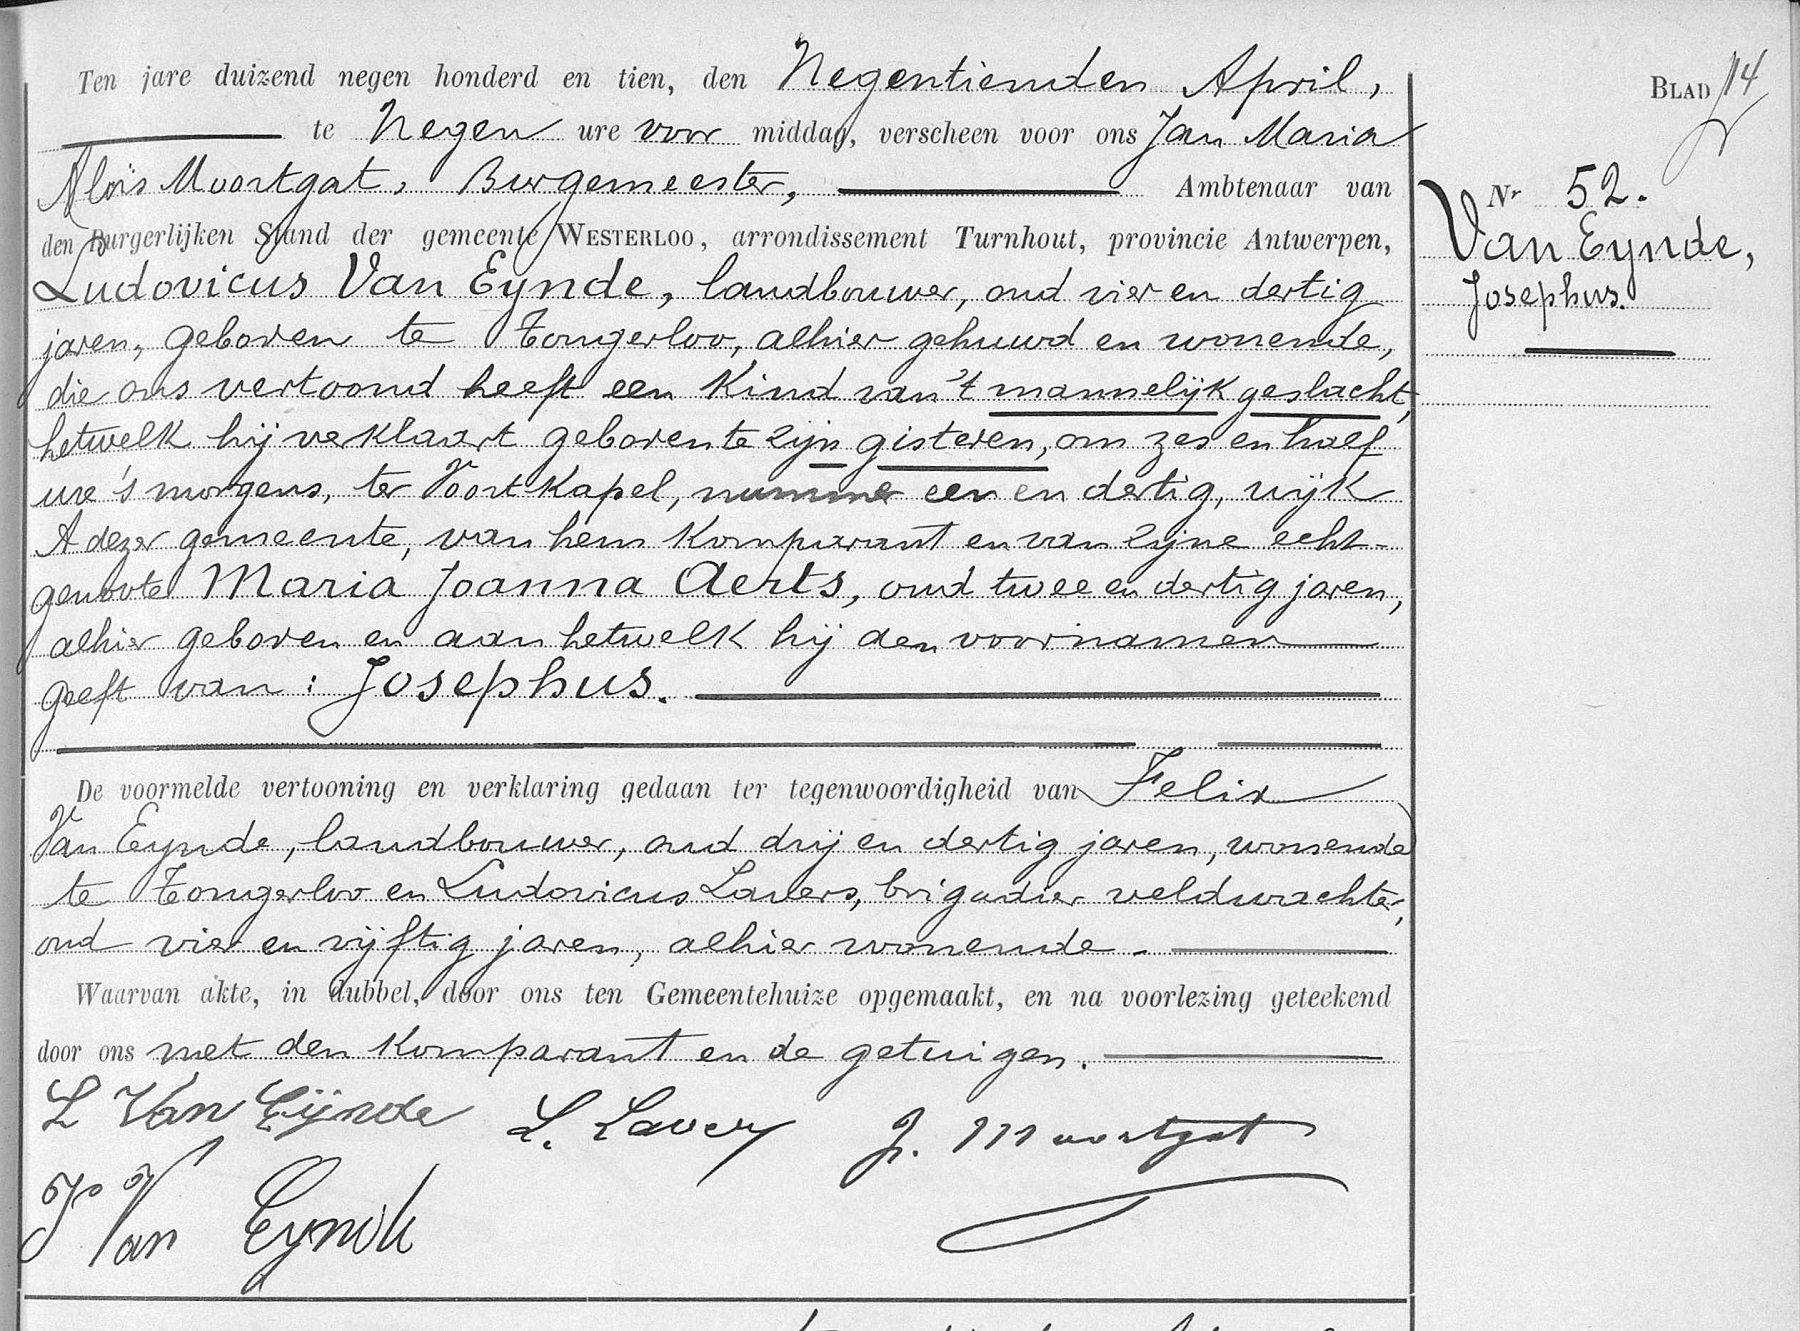 Ten jare duizend negen honderd en tien, den Negentienden April,
te Negen ure voor middag, verscheen voor ons Jan Maria
Aloïs Moortgat, Burgemeester, Ambtenaar van
den Burgerlijken Stand der gemeente WESTERLOO, arrondissement Turnhout, provincie Antwerpen,
Ludovicus Van Eynde, landbouwer, oud vier en dertig
jaren, geboren te Tongerloo, alhier gehuwd en wonende,
die ons vertoond heeft een kind van 't mannelijk geslacht,
hetwelk hij verklaart geboren te zijn gisteren, om zes en half
ure 's morgens, ter Voortkapel, nummer een en dertig, wijk
A dezer gemeente, van hem komparant en van zijne echt-
genoote Maria Joanna Aerts, oud twee en dertig jaren,
alhier geboren en aan hetwelk hij den voornamen
geeft van : Josephus.
De voormelde vertooning en verklaring gedaan ter tegenwoordigheid van Felix
Van Eynde, landbouwer, oud drij en dertig jaren, wonende
te Tongerloo en Ludovicus Lavers, brigadier veldwachter,
oud vier en vijftig jaren, alhier wonende.
Waarvan akte, in dubbel, door ons ten Gemeentehuize opgemaakt, en na voorlezing geteekend
door ons met den komparant en de getuigen.
L Van Eijnde L. Lavers J. Moortgat
Van Eynde
BLAD 14
Nr 52.
Van Eynde,
Josephus.